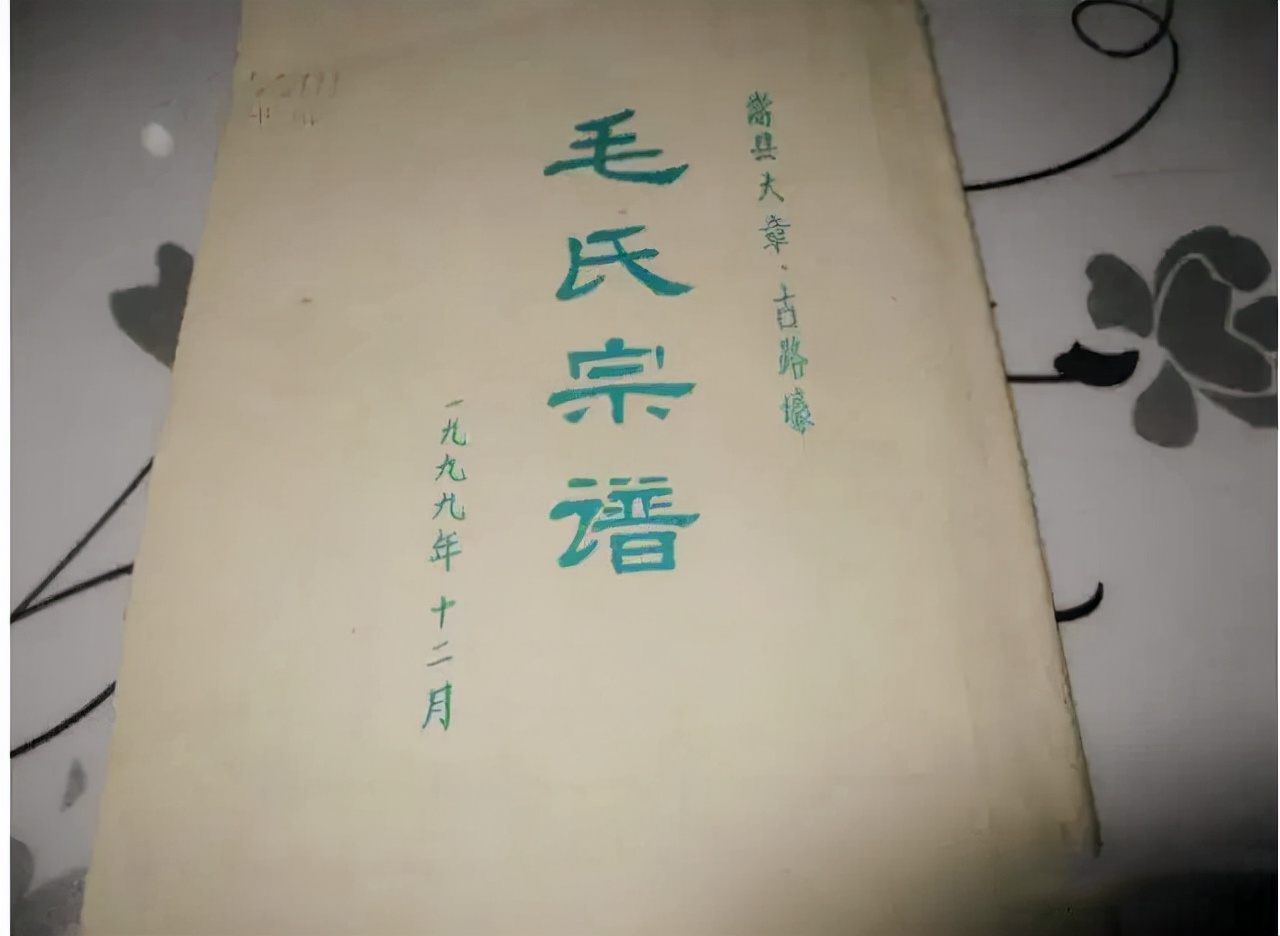 嵩县大章·古路壕
毛氏宗谱
一九九九年十二月